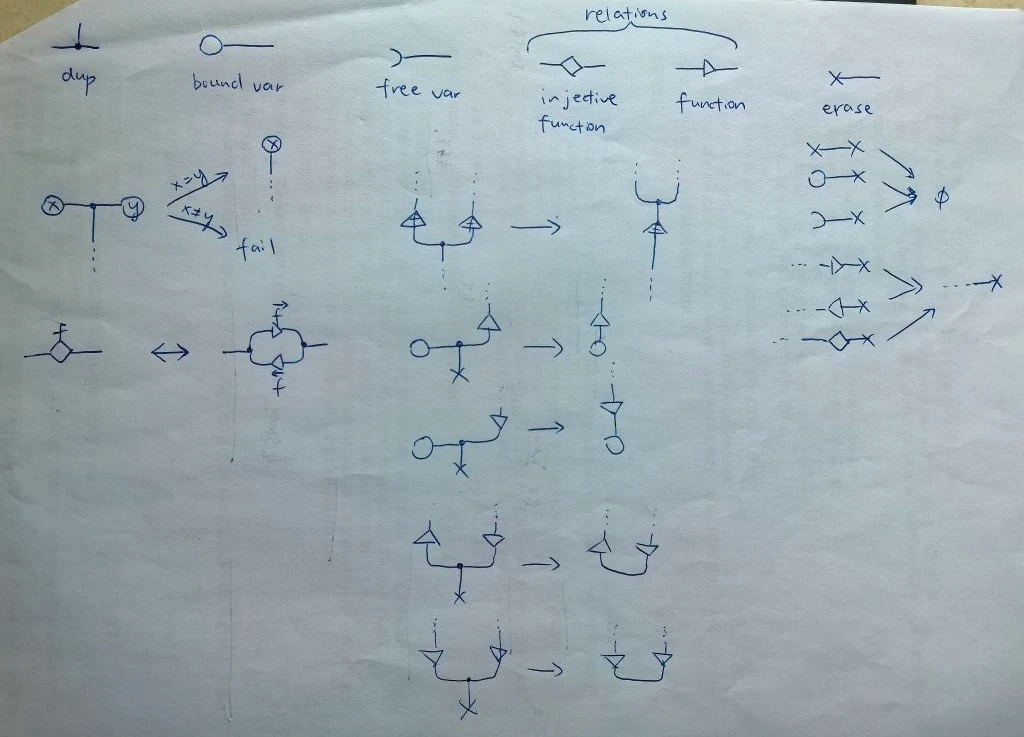 relations
dup
bound var
free var
injective
function
function
erase
x
x y
x=y
x≠y
fail
ϕ
f
f
f